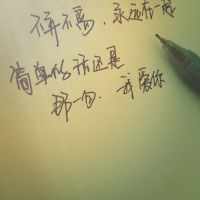 不再不离，永远在一起
简单的话还是
那一句．我爱你